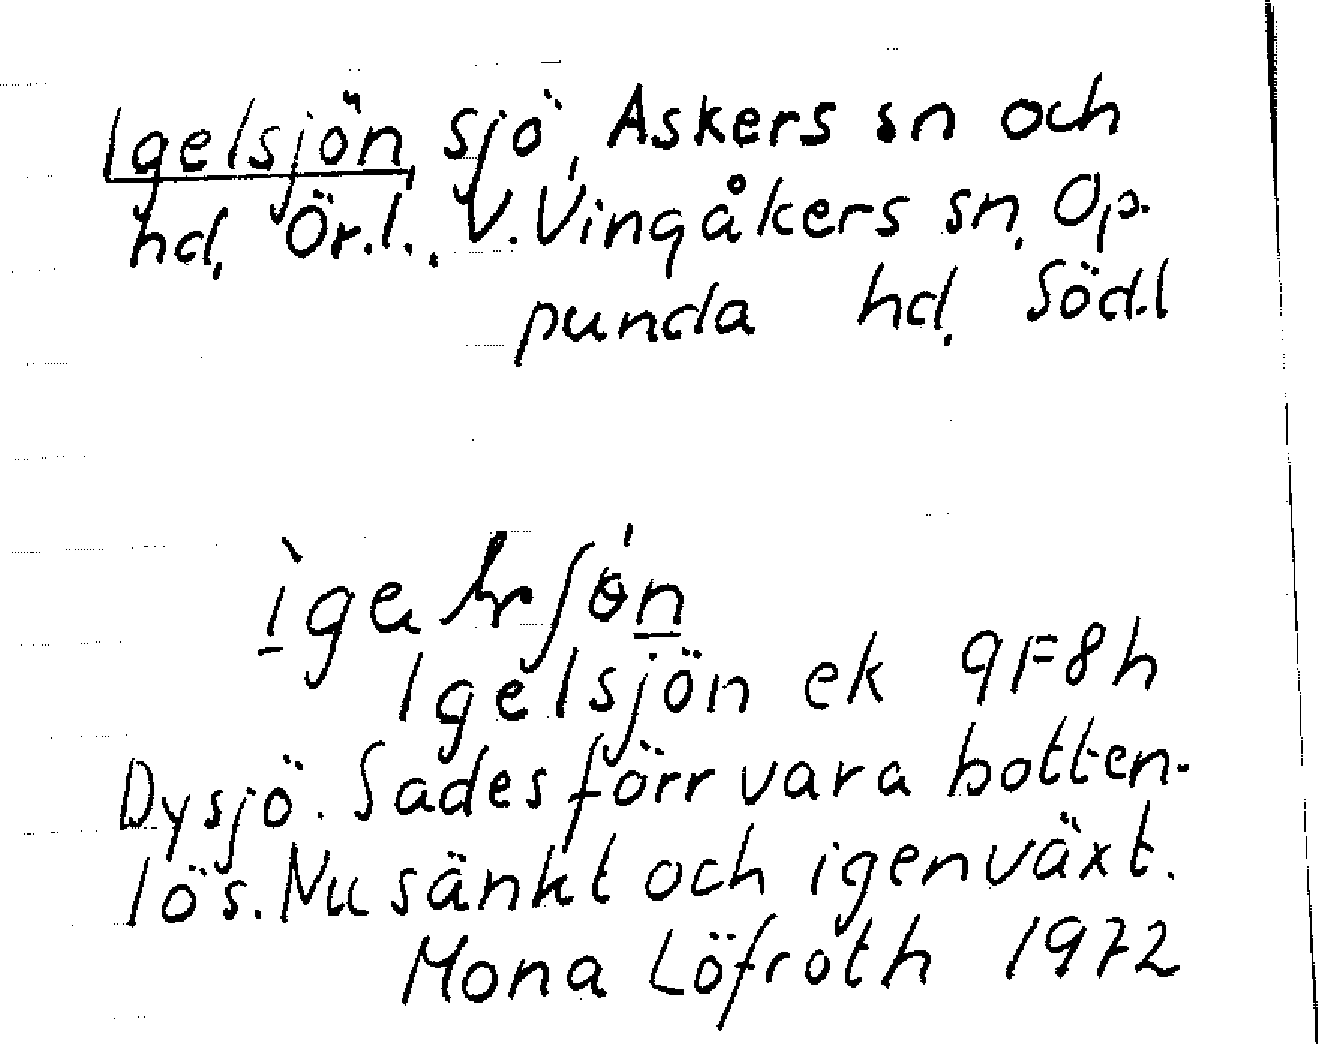 Igelsjön, sjö, Askers sn och
hd, Ör.l., V.Vingåkers sn, Op-
punda hd, Söd.l
Igelsjön ek 9F8h
Dysjö. Sades förr vara botten-
lös. Nu sänkt och igenväxt.
Mona Löfroth 1972